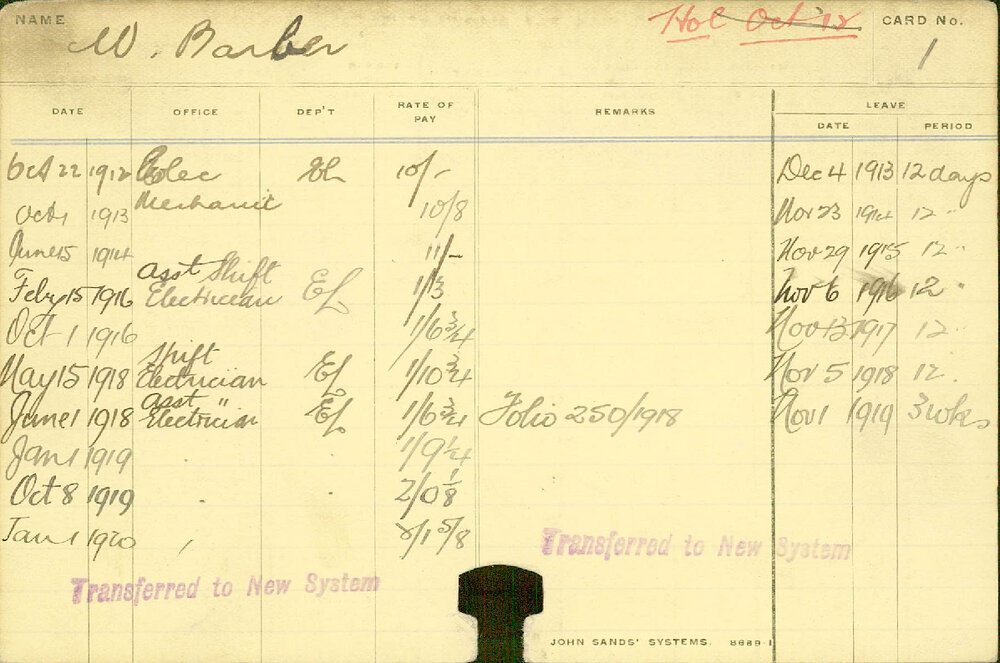 NAME W. Barber Hol Oct '12 CARD No. 1
DATE OFFICE DEP'T RATE OF PAY REMARKS LEAVE
DATE PERIOD
Oct 22 1912 Elec El 10/- Dec 4 1913 12 days
Mechanic
Oct 1 1913 10/8 Nov 23 1914 12 "
June 15 1914 11/- Nov 29 1915 12 "
Asst Shift
Feby 15 1916 Electricean EL 1/3 Nov 6 1916 12 "
Oct 1 1916 1/6 3/4 Nov 13 1917 12 "
Shift
May 15 1918 Electrician EL 1/10 3/4 Nov 5 1918 12 "
Asst "
June 1 1918 Electrician EL 1/6 3/4 Folio 250/1918 Nov 1 1919 3 wks
Jan 1 1919 1/9 1/4
Oct 8 1919 2/0 1/8
Jan 1 1920 2/1 5/8
Transferred to New System
Transferred to New System
JOHN SANDS' SYSTEMS. 8689-1